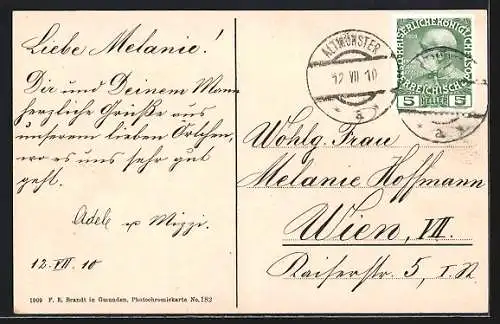 Liebe Melanie!
Dir und Deinem Mann
herzliche Grüße aus
unserem lieben Örtchen,
wo es uns sehr gut
geht.
Adele u Mizzi.
12.VII.10
1909 F. E. Brandt in Gmunden, Photochromiekarte No. 182
ALTMÜNSTER
12 VII 10
a
5 HELLER 5
Wohlg. Frau
Melanie Hoffmann
Wien, VII.
Kaiserstr. 5, I. St